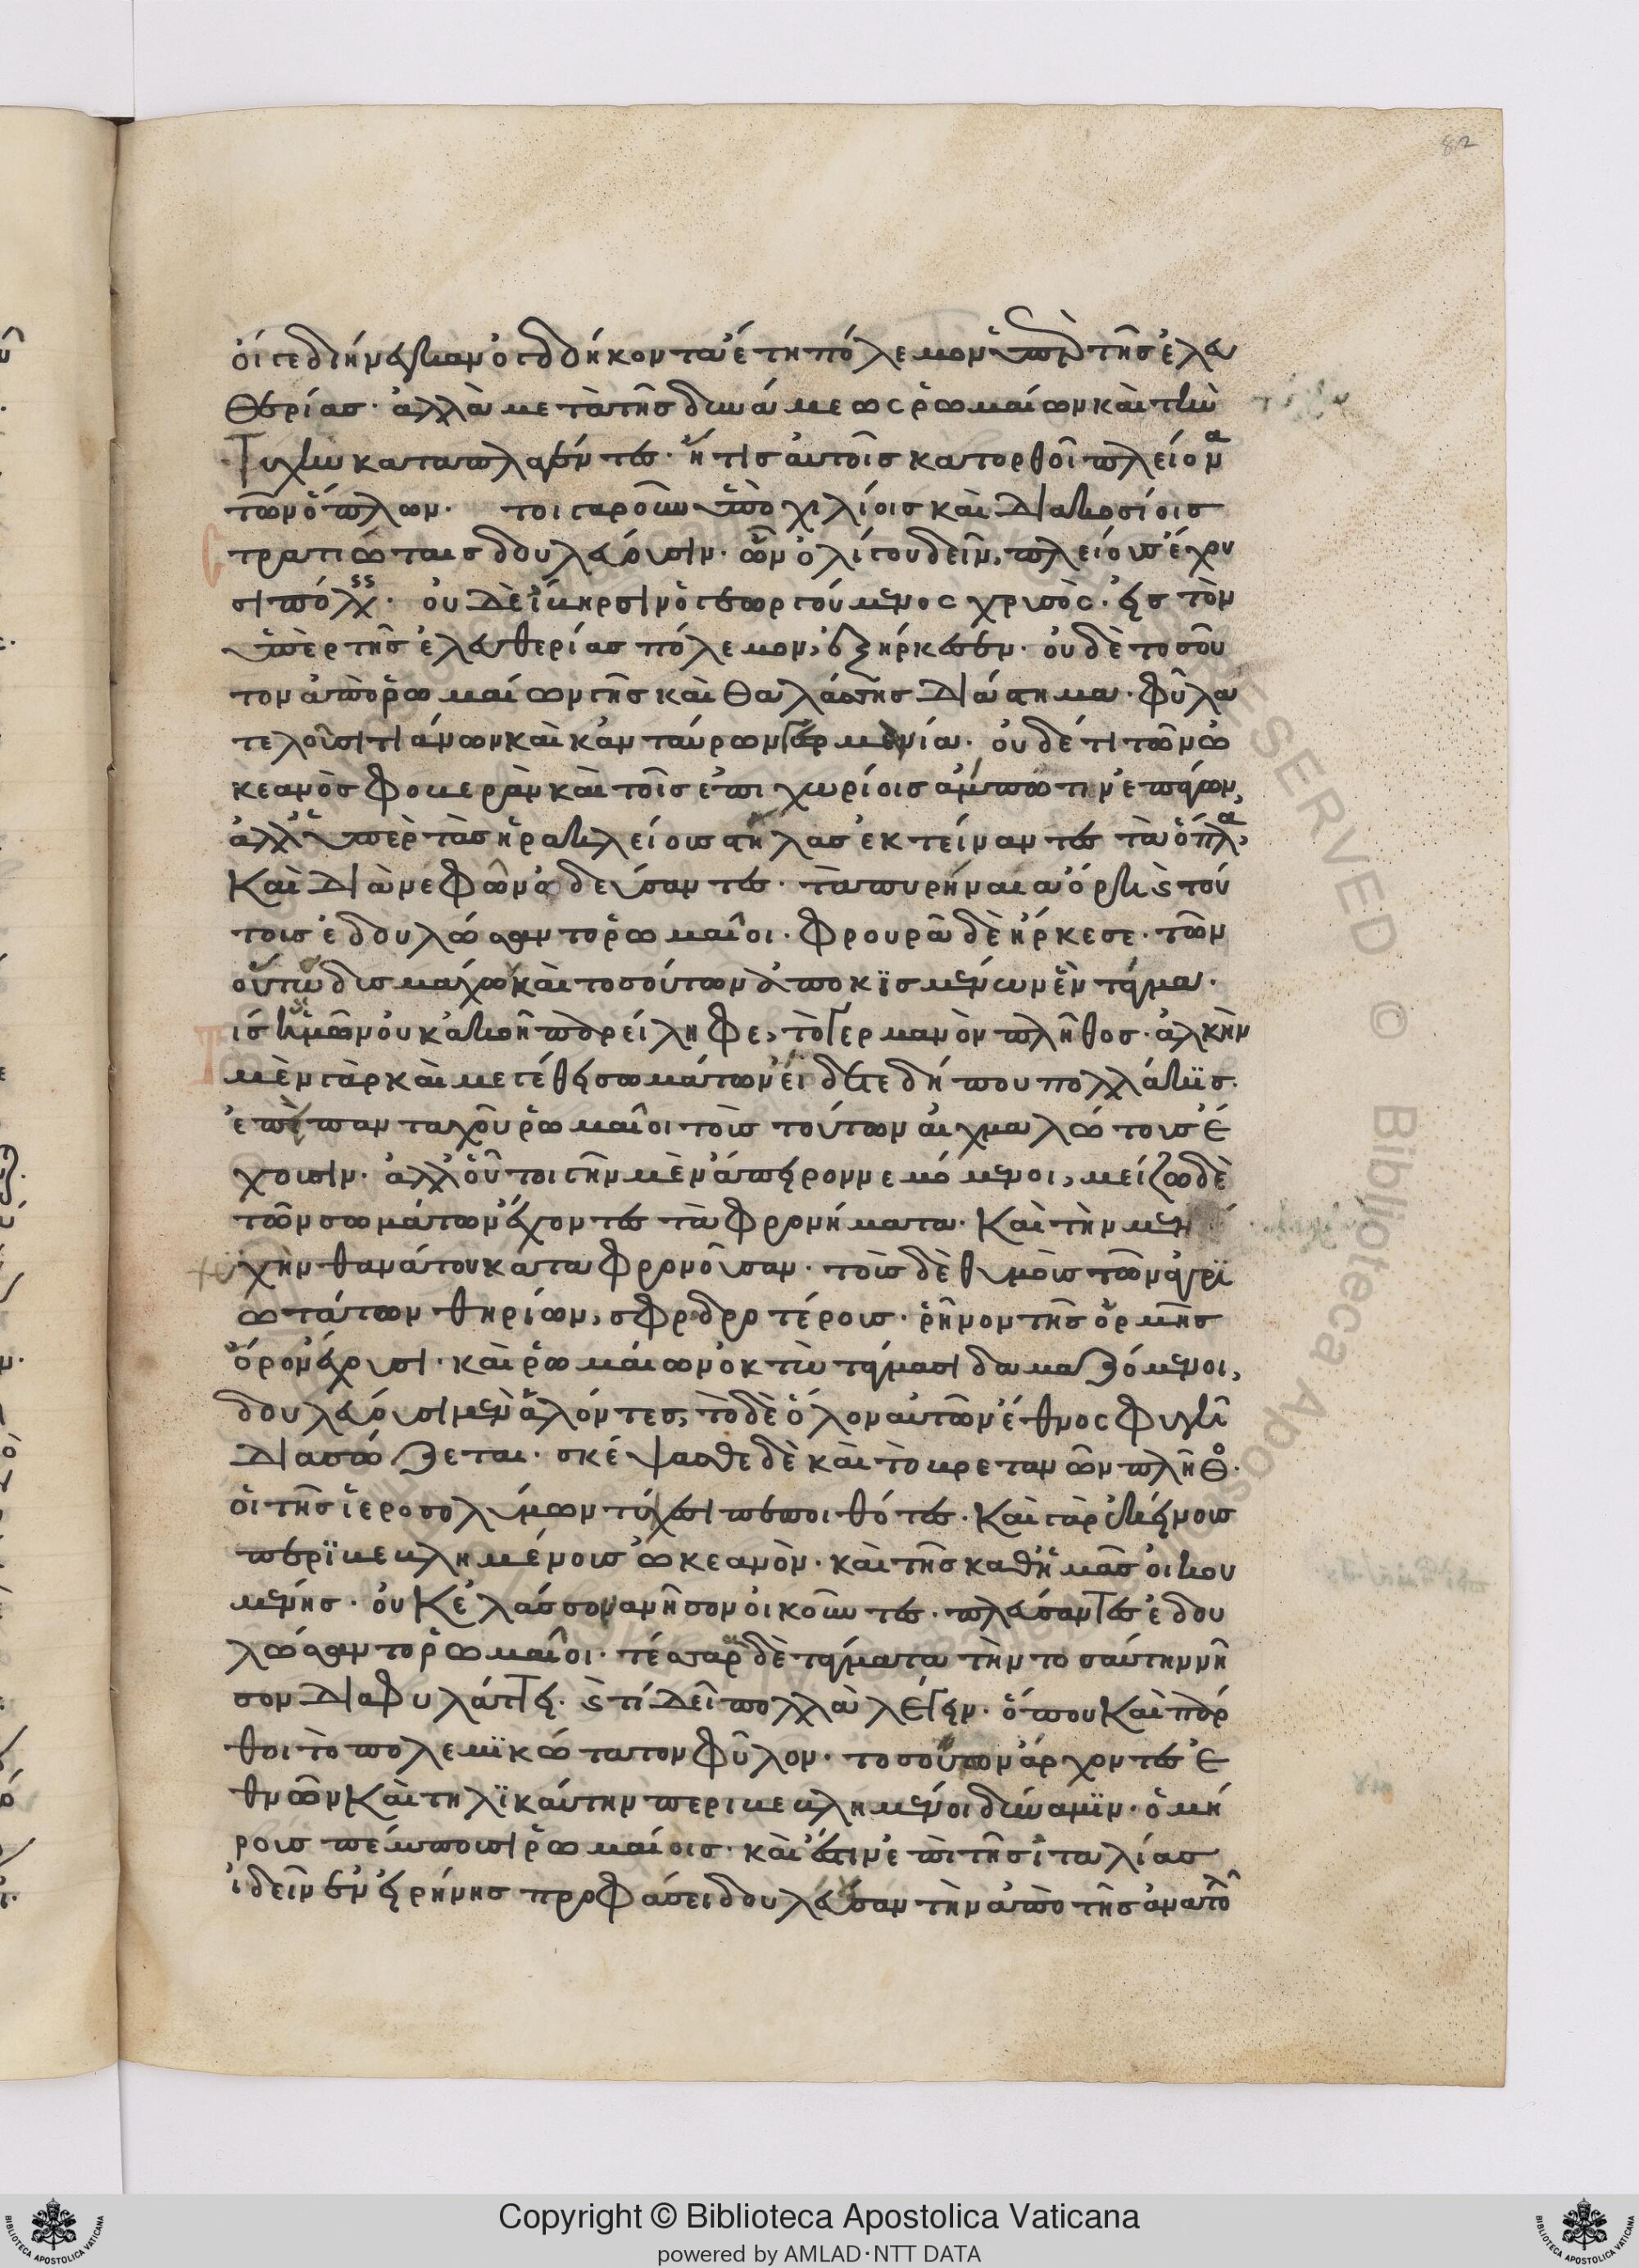 82
οἵ γε διήνεγκαν ὀγδοήκοντα ἔτη πόλεμον ὑπὲρ τῆς ἐλευ
θερίας· ἀλλὰ μετὰ τῆς δυνάμεως ῥωμαίων καὶ τὴν
τύχην καταπλαγέντες· ἥτις αὐτοῖς κατορθοῖ πλείονα
τῶν ὅπλων· τοιγαροῦν ὑπὸ χιλίοις καὶ διακοσίοις
στρατιώταις δουλεύουσιν· ὧν ὀλίγου δεῖν, πλείους ἔχου
σι πόλεις· οὐδὲ ἴβηρσιν ὁ γεωργούμενος χρυσὸς· εἰς τὸν
ὑπὲρ τῆς ἐλευθερίας πόλεμον, ἐξήρκεσεν· οὐδὲ τοσοῦ
τον ἀπὸ ῥωμαίων γῆς καὶ θαλάσσης διάστημα· φῦλα
τε λουσιτιάνων καὶ κανταύρων ἀρμένια· οὐδέ τι τῶν ὠ
κεανὸς φοβερὰν καὶ τοῖς ἐπιχωρίοις ἄμπωτιν ἐπάγων,
ἀλλ' ὑπὲρ τὰς ἡρακλείους στήλας ἐκτείναντες τὰ ὅπλα,
καὶ διὰ νεφῶν ὁδεύσαντες· τὰ πυρήναια ὄρη καὶ τού
τους ἐδουλώσαντο ῥωμαῖοι· φρουρὰ δὲ ἤρκεσε· τῶν
οὕτω δυσμάχων καὶ τοσούτων ἀπῳκισμένων ἓν τάγμα·
τίς ὑμῶν οὐκ ἀκοῇ παρείληφε, τὸ γερμανὸν πλῆθος· ἀλκὴν
μὲν γὰρ καὶ μεγέθη σωμάτων εἴδετε δή που πολλάκις·
ἐπεὶ πανταχοῦ ῥωμαῖοι τοὺς τούτων αἰχμαλώτους ἔ
χουσιν· ἀλλ' οὗτοι γῆν μὲν ἄπειρον νεμόμενοι, μείζω δὲ
τῶν σωμάτων ἔχοντες τὰ φρονήματα· καὶ τὴν μὲν ψυ
χὴν θανάτου καταφρονοῦσαν· τοὺς δὲ θυμοὺς τῶν ἀγρι
ωτάτων θηρίων, σφοδροτέρους· ῥῆνον τῆς ὁρμῆς
ὅρον ἔχουσι· καὶ ῥωμαίων ὀκτὼ τάγμασι δαμαζόμενοι,
δουλεύουσι μὲν ἁλόντες, τὸ δὲ ὅλον αὐτῶν ἔθνος φυγῇ
διασώζεται· σκέψασθε δὲ καὶ τὸ βρεττανῶν πλῆθος·
οἱ τῆς ἱεροσολύμων τείχεσι πεποιθότες· καὶ γὰρ ἐκείνους
περιβεβλημένους ὠκεανὸν· καὶ τῆς καθ' ἡμᾶς οἰκου
μένης· οὐκ ἐλάσσονα νῆσον οἰκοῦντες· πλεύσαντες ἐδου
λώσαντο ῥωμαῖοι· τέσσαρα δὲ τάγματα τὴν τοσαύτην νῆ
σον διαφυλάττει· καὶ τί δεῖ πολλὰ λέγειν· ὅπου καὶ πάρ
θοι τὸ πολεμικώτατον φῦλον· τοσούτων ἄρχοντες ἐ
θνῶν καὶ τηλικαύτην περιβεβλημένοι δύναμιν· ὁμή
ρους πέμπουσι ῥωμαίοις· καὶ ἔστιν ἐπὶ τῆς ἰταλίας
ἰδεῖν ἐν εἰρήνης προφάσει δουλεύσαν τὴν ἀπὸ τῆς ἀνατολῆς